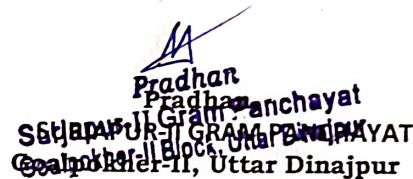 Pradhan
Pradhan
Surjapur-II Gram Panchayat
SURJAPUR-II GRAM PANCHAYAT
Goalpokher-II Block, Uttar Dinajpur
Goalpokher-II, Uttar Dinajpur